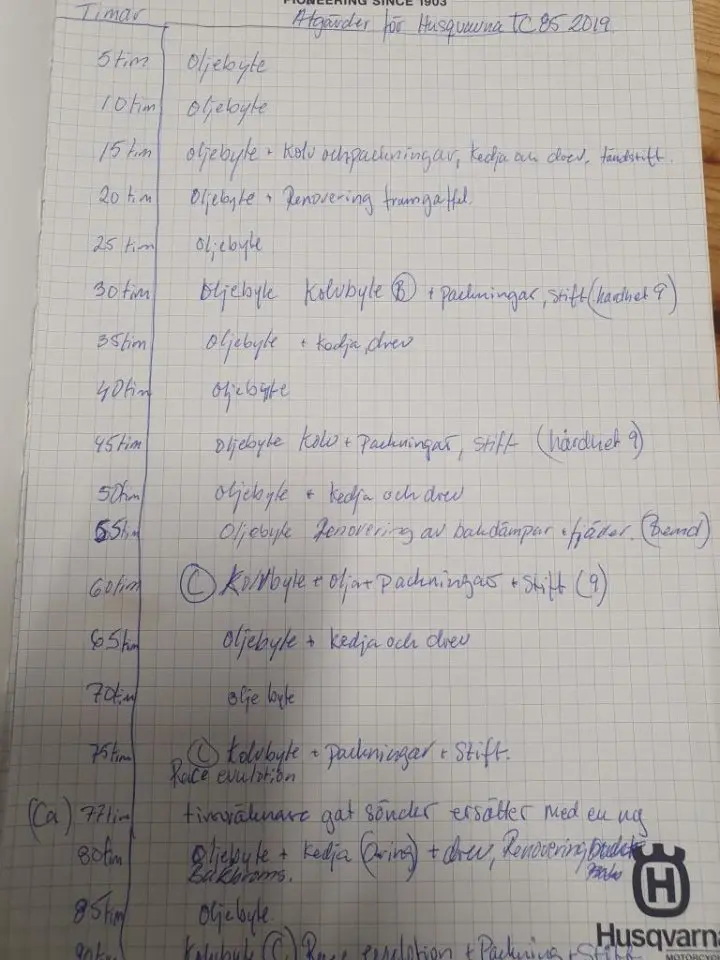 PIONEERING SINCE 1903
Timar Åtgärder för Husqvarna TC 85 2019
5 tim Oljebyte
10 tim Oljebyte
15 tim Oljebyte + Kolv och packningar, Kedja och drev, tändstift.
20 tim Oljebyte + Renovering framgaffel.
25 tim Oljebyte
30 tim Oljebyte Kolvbyte (B) + packningar, stift (hårdhet 9)
35 tim Oljebyte + Kedja, drev
40 tim Oljebyte
45 tim Oljebyte Kolv + Packningar, Stift (hårdhet 9)
50 tim Oljebyte + Kedja och drev
55 tim Oljebyte Renovering av bakdämpar + fjäder. (Bemd)
60 tim (C) Kolvbyte + Olja + packningar + Stift (9)
65 tim Oljebyte + Kedja och drev
70 tim Oljebyte
75 tim (C) Kolvbyte + packningar + Stift.
Race evulotion
(Ca) 77 tim timräknare gåt sönder ersätter med en ny
80 tim Oljebyte + Kedja (Oring) + drev, Renovering
Bakbroms.
85 tim Oljebyte.
90 tim Kolvbyte (C) Race evolotion + Packning + Stift
Husqvarna
MOTORCYC